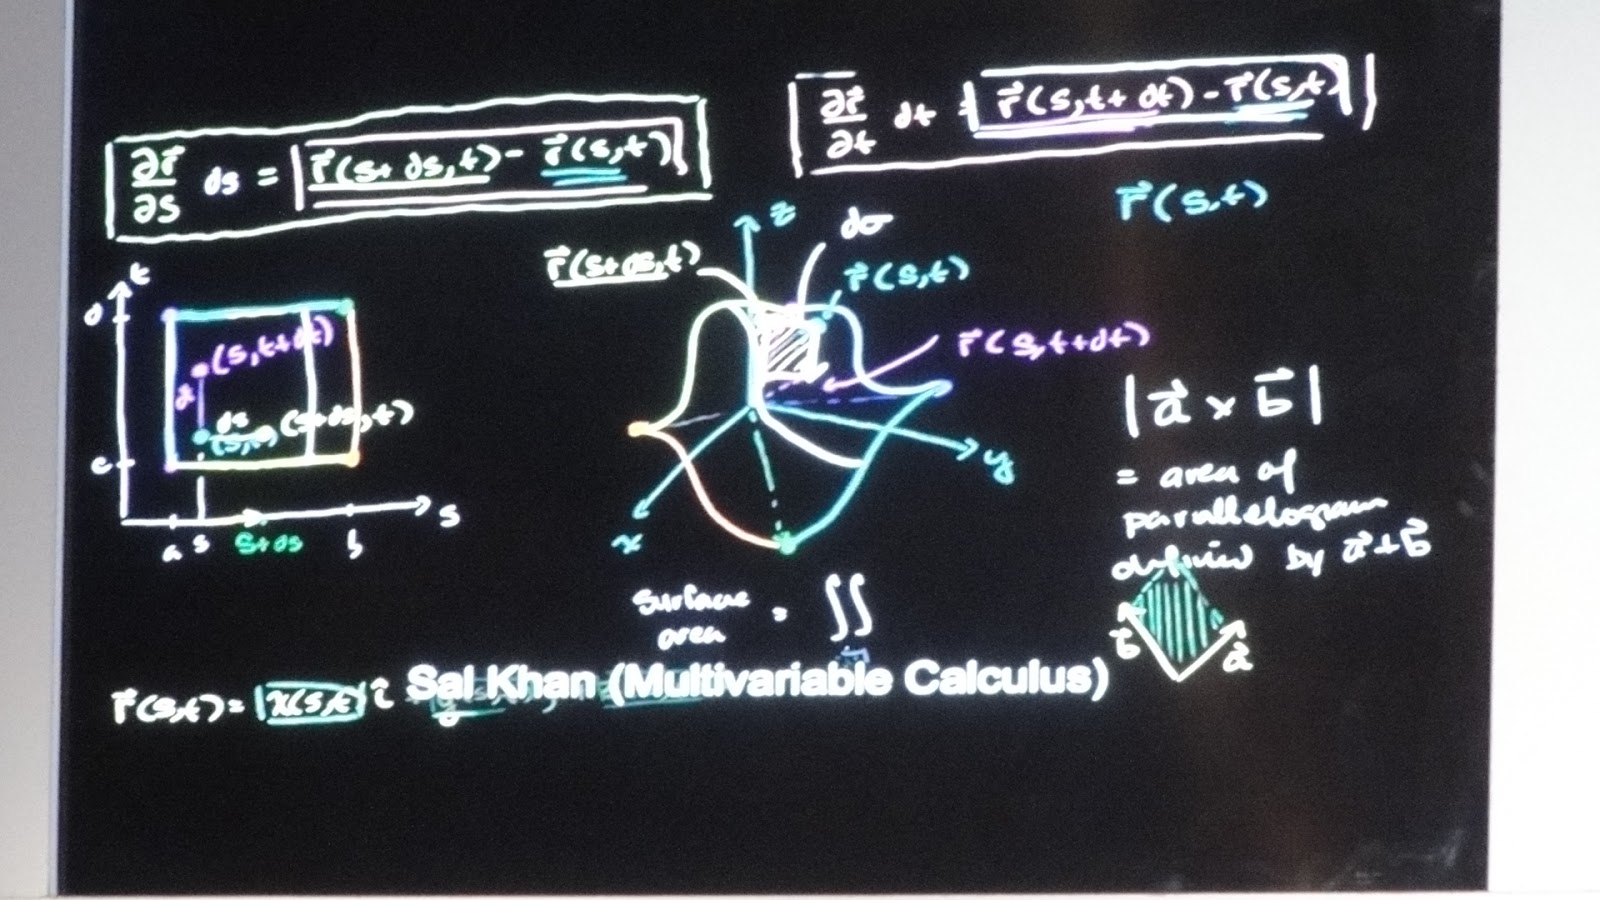 ∂r⃗/∂s ds = r⃗(s+ds,t) - r⃗(s,t)
∂r⃗/∂t dt = r⃗(s,t+dt) - r⃗(s,t)
r⃗(s,t)
z
dσ
r⃗(s+ds,t)
r⃗(s,t)
r⃗(s,t+dt)
x
y
t
d
(s,t+dt)
ds
(s+ds,t)
c
s
a s s+ds b
|a⃗ × b⃗|
= area of
parallelogram
defined by a⃗ + b⃗
b⃗ a⃗
surface = ∬
area
r⃗(s,t) = x(s,t) î
Sal Khan (Multivariable Calculus)